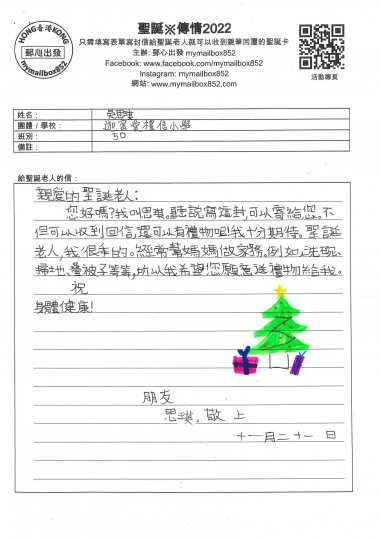 HONG香港KONG
郵心出發
mymailbox852
聖誕※傳情2022
只需填寫表單寫封信給聖誕老人就可以收到親筆回覆的聖誕卡
主辦: 郵心出發 mymailbox852
Facebook: www.facebook.com/mymailbox852
Instagram: mymailbox852
網站: www.mymailbox852.com
活動專頁
姓名:
團體 / 學校: 迦密愛禮信小學
班別: 5D
備註:
給聖誕老人的信:
親愛的聖誕老人:
您好嗎?我叫思璂。聽說寫這封,可以寄給您。不
但可以收到回信,還可以有禮物呢!我十分期待。聖誕
老人,我很乖的。經常幫媽媽做家務。例如,洗碗、
掃地、疊被子等等,所以我希望您願意送禮物給我。
祝
身體健康!
朋友
思璂。敬上
十一月二十一日